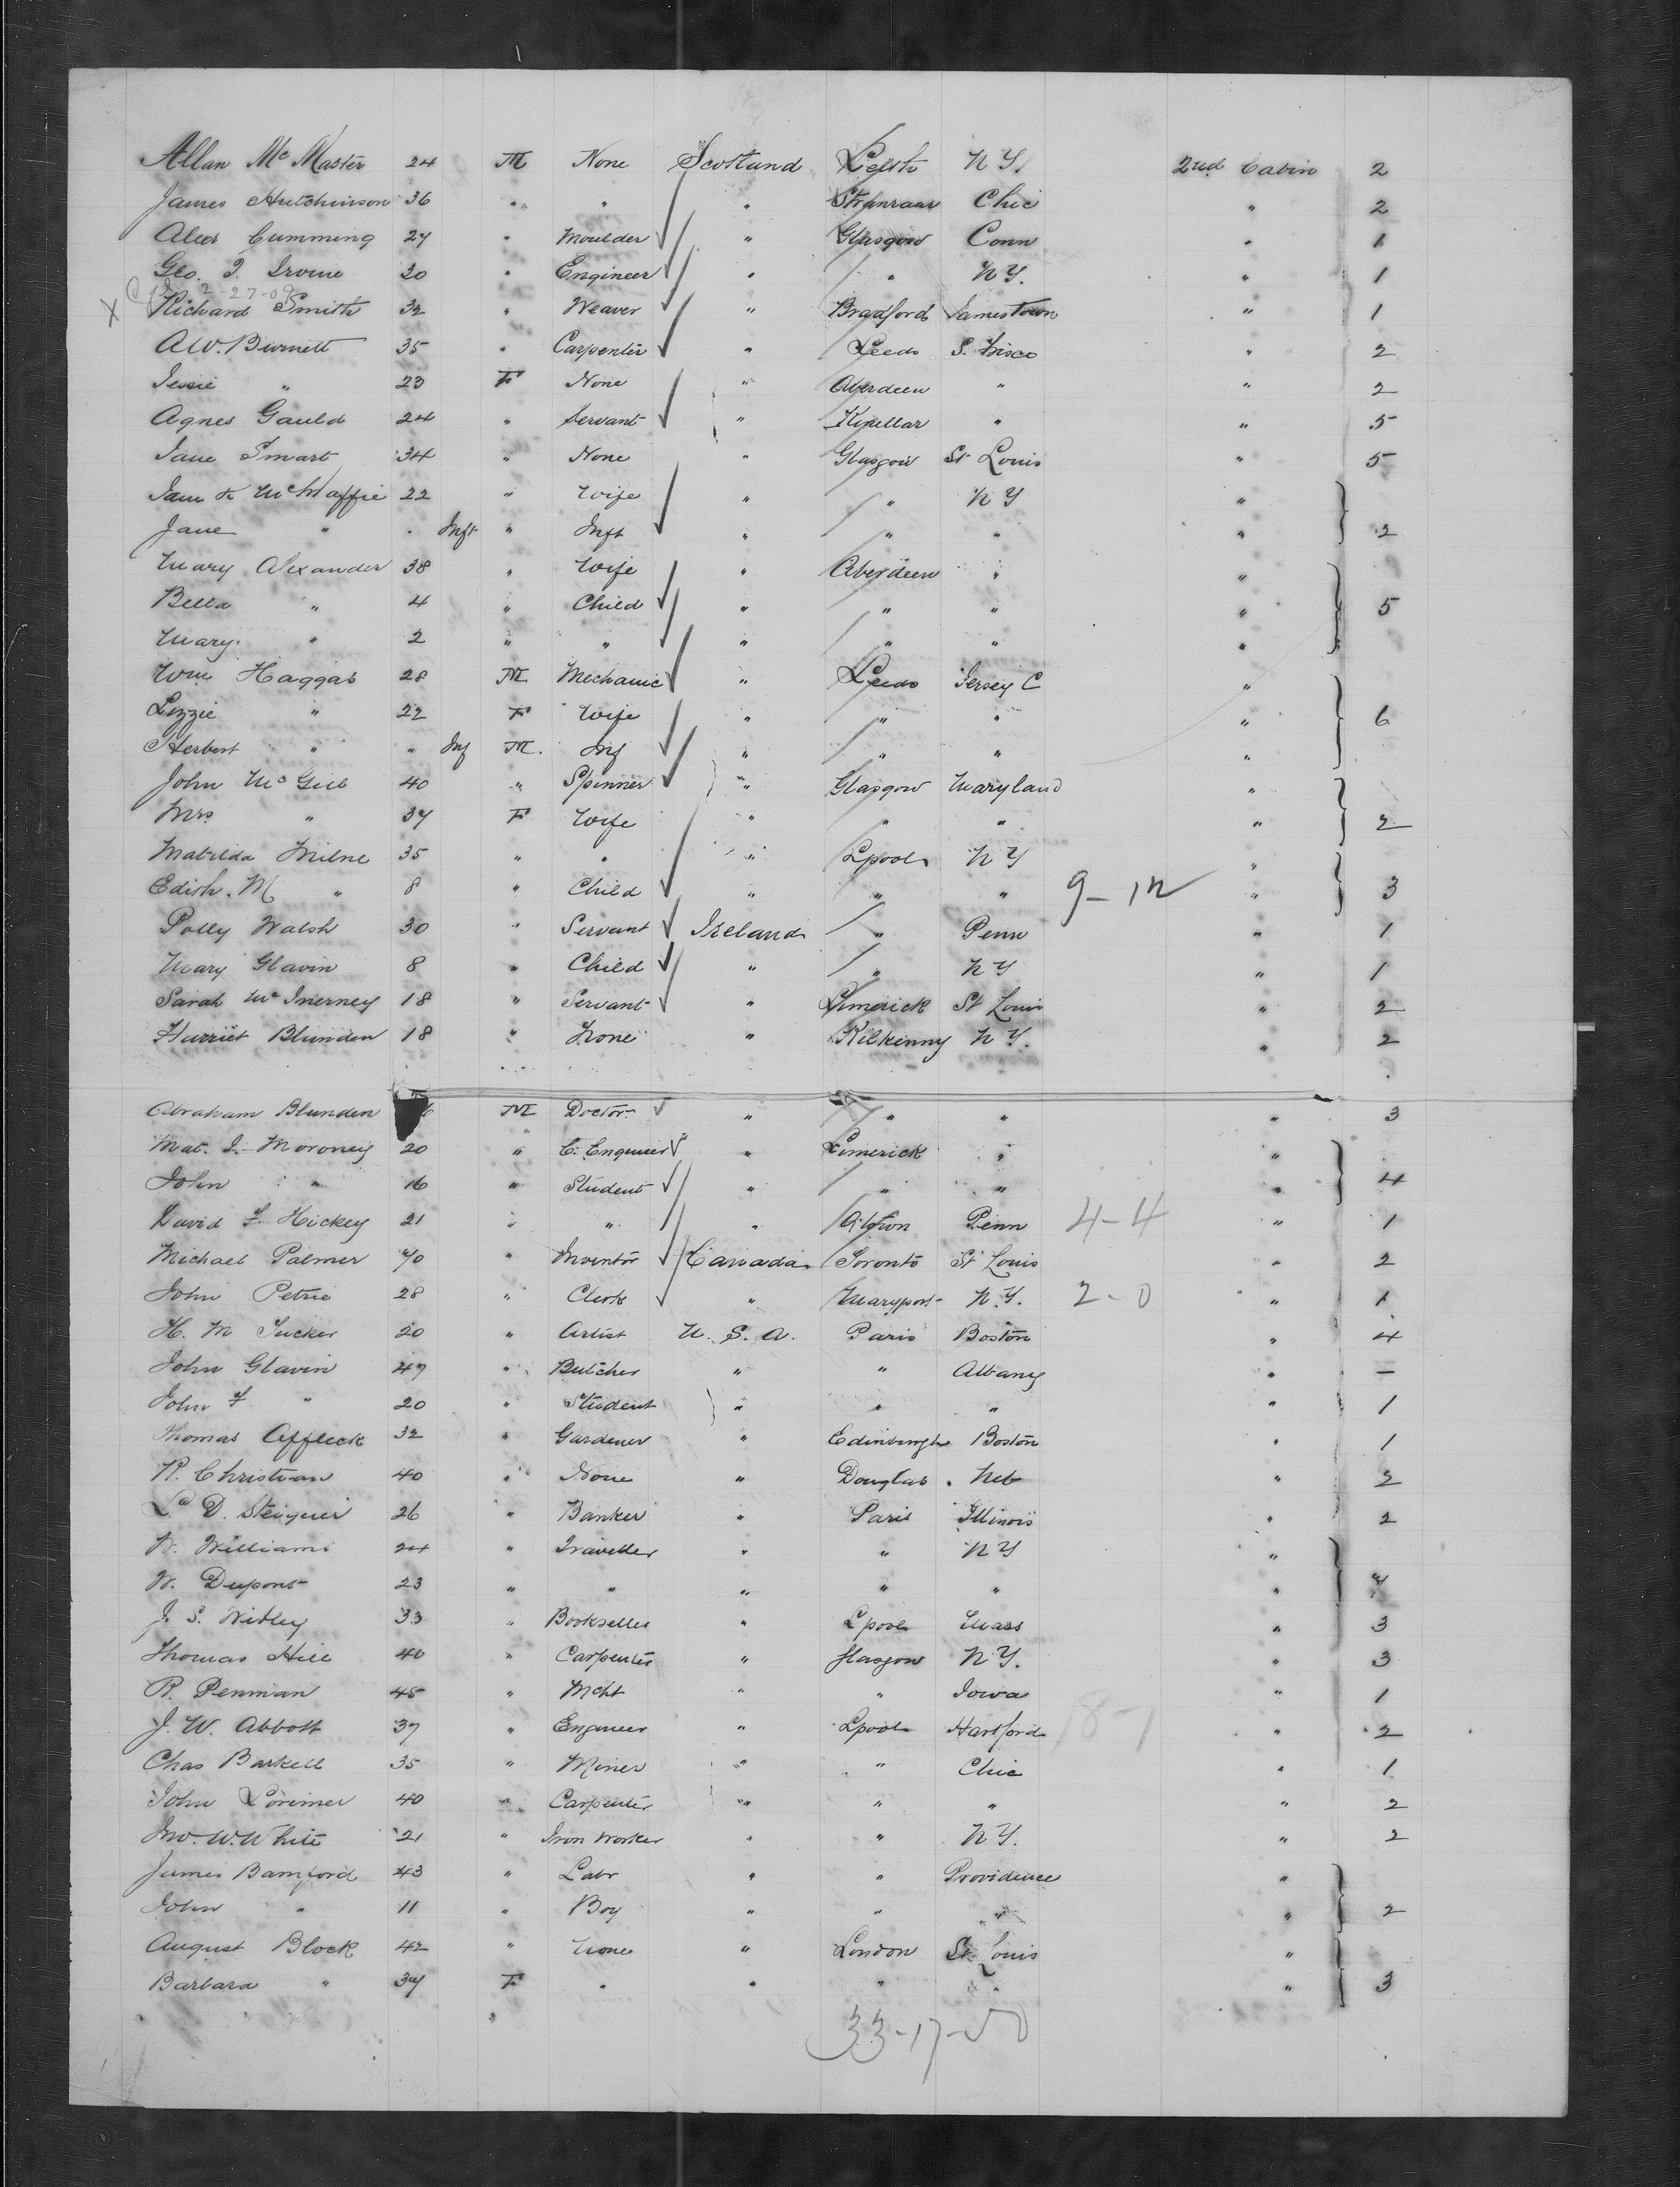 Allan Mc Master 24 M None Scotland Leith N Y. 2nd Cabin 2
James Hutchinson 36 " " " Stranraar Chic " 2
Alex Cumming 27 " Moulder " Glasgow Conn " 1
Geo. I. Irvine 30 " Engineer " " N Y. " 1
X 2-27-09
Richard Smith 32 " Weaver " Bradford Jamestown " 1
A W. Burnett 35 " Carpenter " Leeds S. Frisco " 2
Jessie " 23 F None " Aberdeen " " 2
Agnes Gauld 24 " Servant " Kinellar " " 5
Jane Smart 34 " None " Glasgow St Louis " 5
Jane K McHaffie 22 " Wife " " N Y "
Jane " " Inft " Inft " " " " 2
Mary Alexander 38 " Wife " Aberdeen " "
Bella " 4 " Child " " " " 5
Mary " 2 " " " " " "
Wm Haggas 28 M Mechanic " Leeds Jersey C "
Lizzie " 22 F Wife " " " " 6
Herbert " " Inf M. Inf " " " "
John Mc Gill 40 " Spinner " Glasgow Maryland "
Mrs " 37 F Wife " " " " 2
Matilda Milne 35 " " " Lpool N Y "
Edith. M " 8 " Child " " " 9-12 " 3
Polly Walsh 30 " Servant Ireland " Penn " 1
Mary Glavin 8 " Child " " N Y " 1
Sarah Mc Inerney 18 " Servant " Limerick St Louis " 2
Harriet Blunden 18 " None " Kilkenny N Y. " 2
Abraham Blunden 6 M Doctor " " " " 3
Mat. J. Moroney 20 " C. Engineer " Limerick " "
John " 16 " Student " " " " 4
David F. Hickey 21 " " " Penn 4-4 " 1
Michael Palmer 70 " Inventor Canada Toronto St Louis " 2
John Petrie 28 " Clerk " Maryport N. Y. 2-0 " 1
H. M Tucker 20 " Artist U. S. A. Paris Boston " 4
John Glavin 47 " Butcher " " Albany " —
John F " 20 " Student " " " " 1
Thomas Affleck 32 " Gardener " Edinburgh Boston " 1
R. Christian 40 " None " Douglas Neb " 2
L. D. Steiguer 26 " Banker " Paris Illinois " 2
W. Williams 24 " Traveller " " N Y "
W. Dupont 23 " " " " " " 7
J. S. Witley 33 " Bookseller " Lpool Mass " 3
Thomas Hill 40 " Carpenter " Glasgow N Y. " 3
R. Penman 45 " Mcht " " Iowa " 1
J. W. Abbott 37 " Engineer " Lpool Hartford 8-1 " 2
Chas Barkell 35 " Miner " " Chic " 1
John Lorimer 40 " Carpenter " " " " 2
Jno. W. White 21 " Iron Worker " " N Y. " 2
James Bamford 43 " Labr " " Providence "
John " 11 " Boy " " " " 2
August Block 42 " None " London St Louis "
Barbara " 37 F " " " " " 3
33-17-50